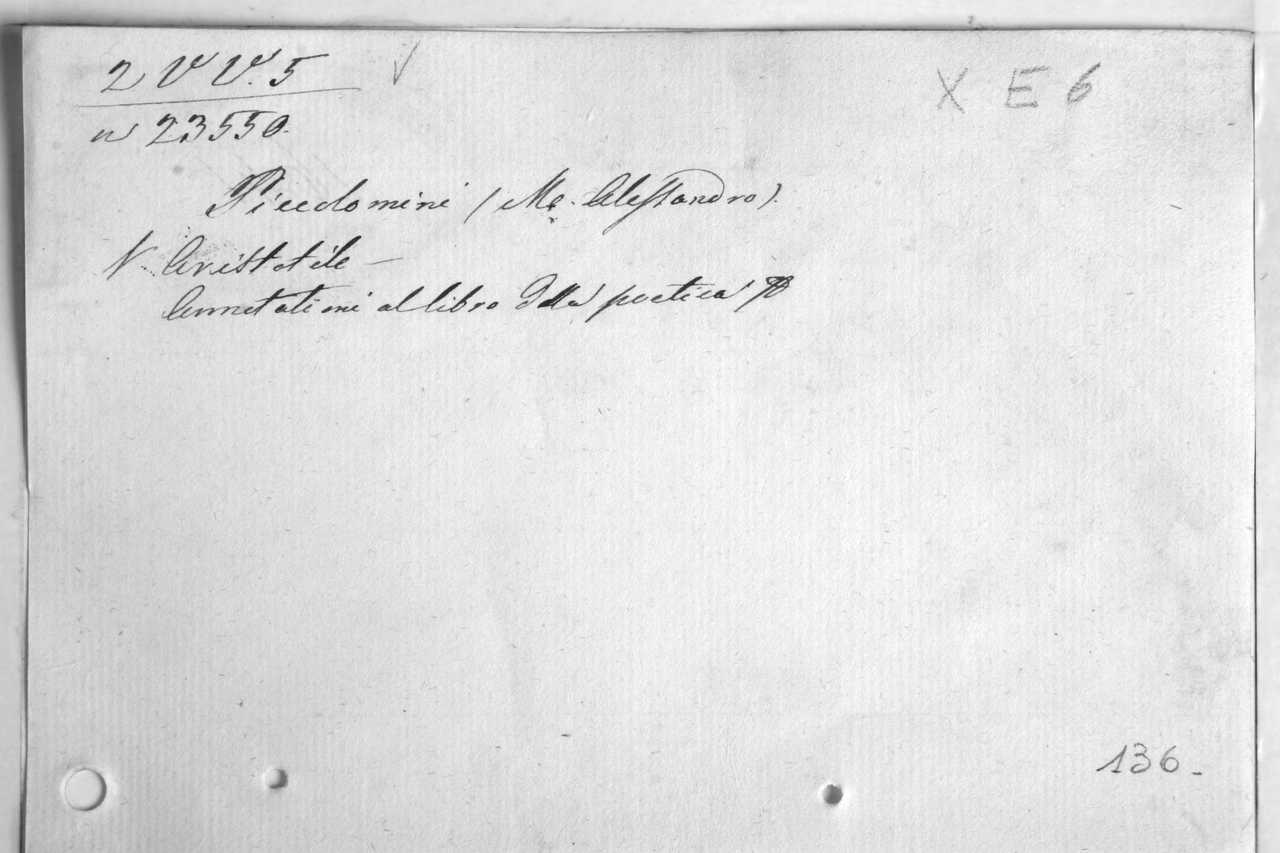 2 V V. 5
X E 6
n 23550.
Piccolomini (Me. Alessandro).
V. Aristotile —
Annotationi al libro della poetica
136.